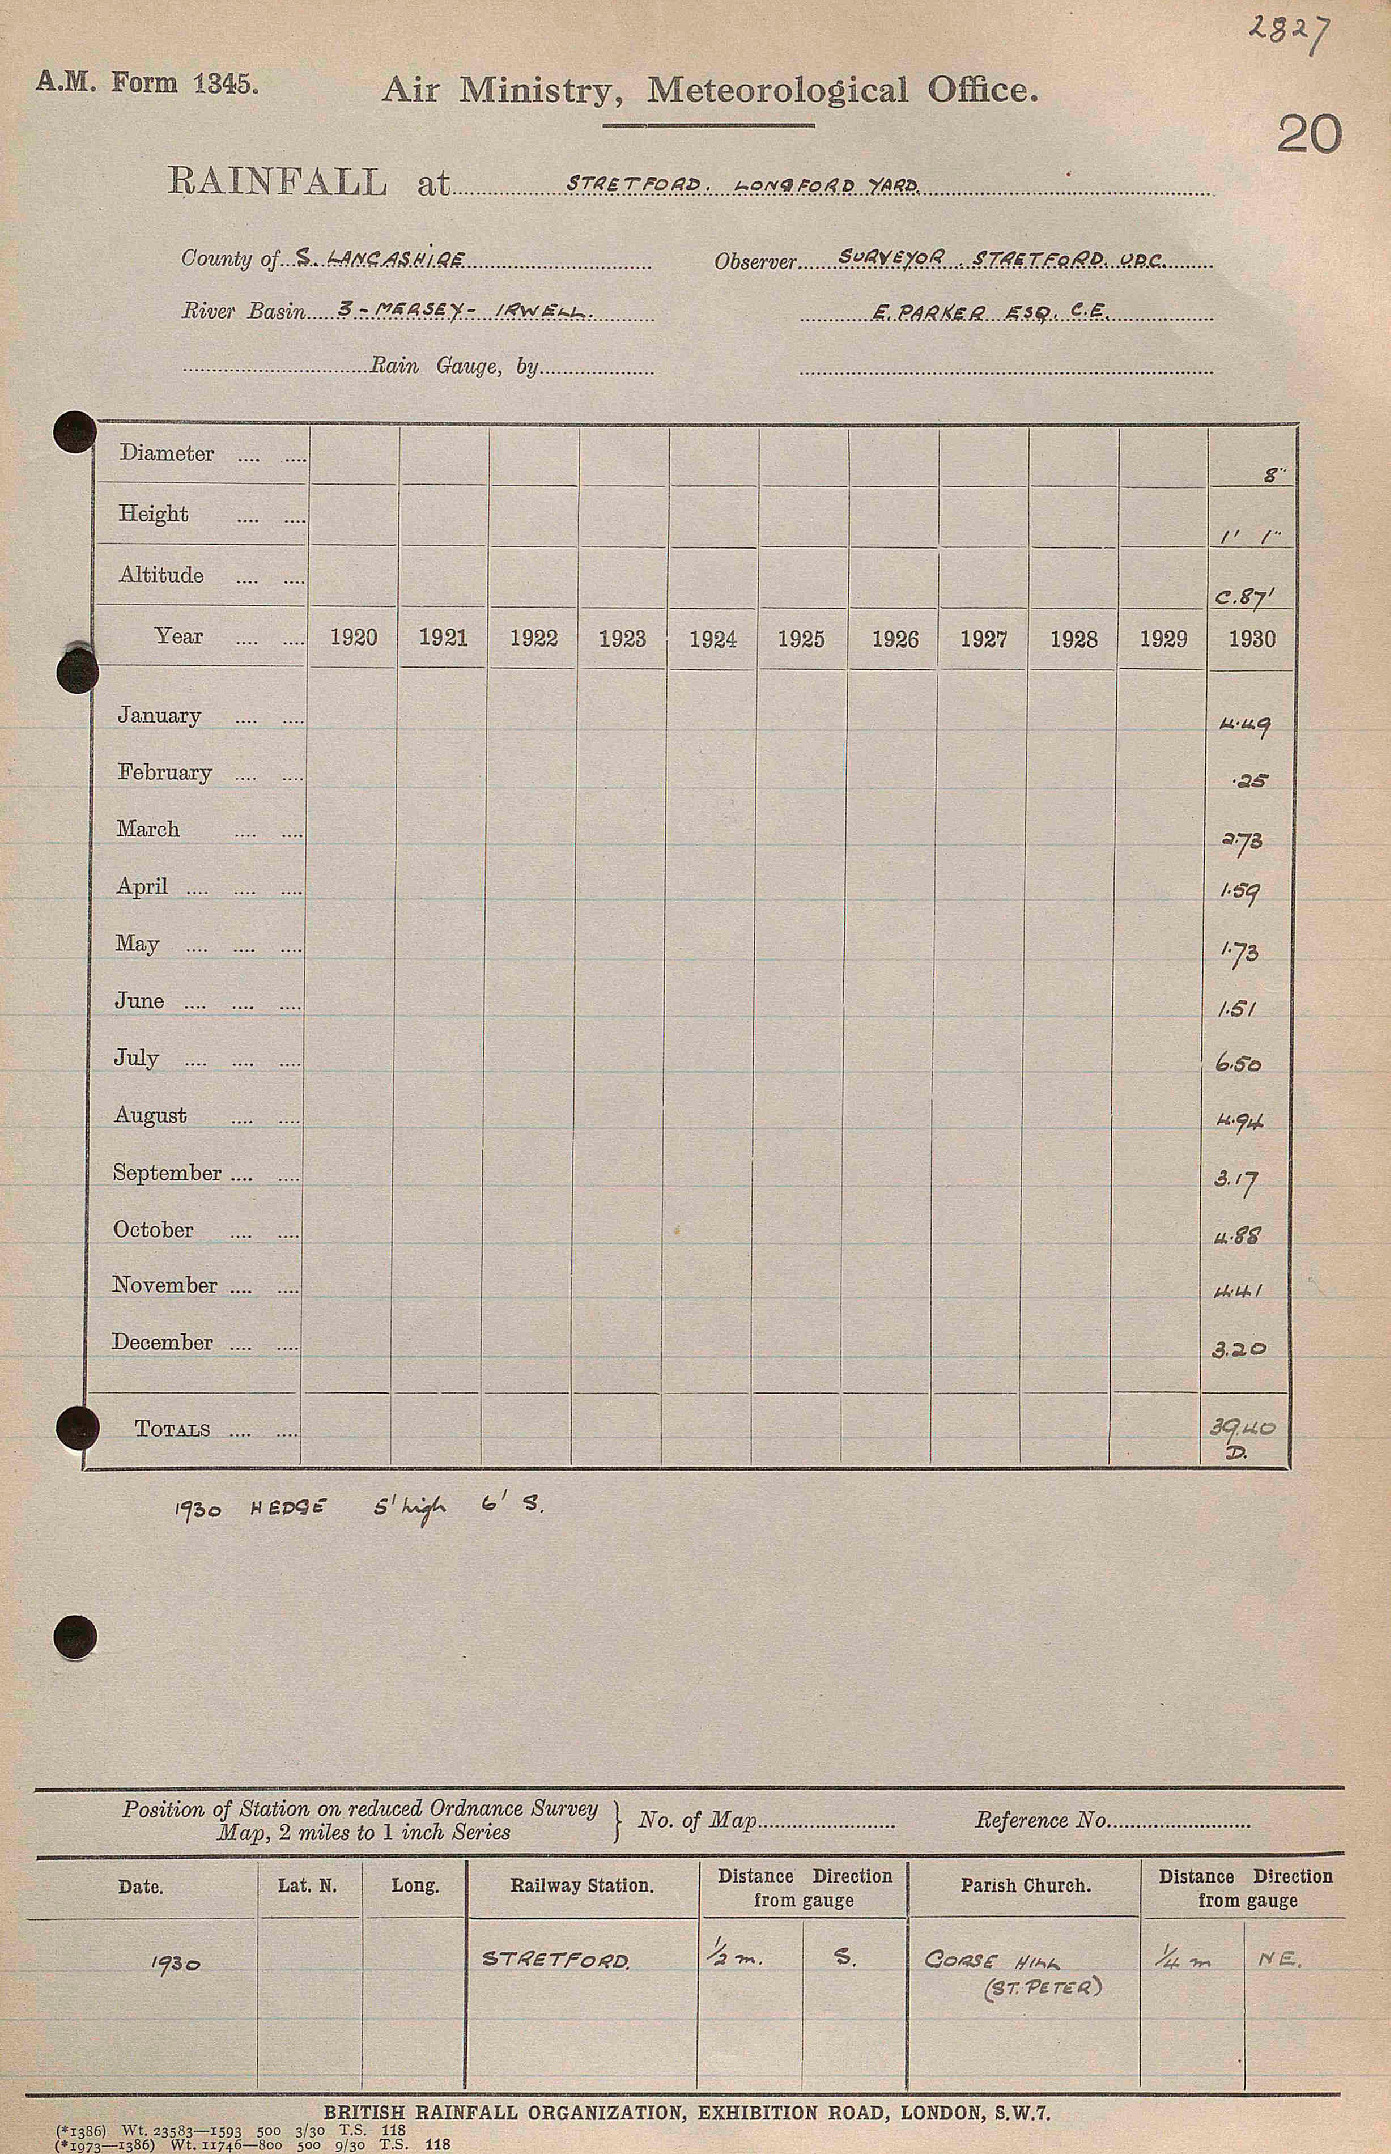 2827
A.M. Form 1345.
Air Ministry, Meteorological Office.
20
RAINFALL at STRETFORD. LONGFORD YARD.
County of S. LANCASHIRE Observer SURVEYOR. STRETFORD. UDC.
River Basin 3 - MERSEY - IRWELL. E. PARKER ESQ. C.E.
Rain Gauge, by
Diameter .... .... 8"
Height .... .... 1' 1"
Altitude .... .... C.87'
Year .... .... 1920 1921 1922 1923 1924 1925 1926 1927 1928 1929 1930
January .... .... 4.49
February .... .... .25
March .... .... 2.73
April .... .... .... 1.59
May .... .... .... 1.73
June .... .... .... 1.51
July .... .... .... 6.50
August .... .... 4.94
September .... .... 3.17
October .... .... 4.88
November .... .... 4.41
December .... .... 3.20
TOTALS .... .... 39.40
D.
1930 HEDGE 5' high 6' S.
Position of Station on reduced Ordnance Survey
Map, 2 miles to 1 inch Series } No. of Map Reference No.
Date. Lat. N. Long. Railway Station. Distance Direction from gauge Parish Church. Distance Direction from gauge
1930 STRETFORD. ½ m. S. GORSE HILL ¼ m NE.
(ST. PETER)
BRITISH RAINFALL ORGANIZATION, EXHIBITION ROAD, LONDON, S.W.7.
(*1386) Wt. 23583—1593 500 3/30 T.S. 118
(*1973—1386) Wt. 11746—800 500 9/30 T.S. 118